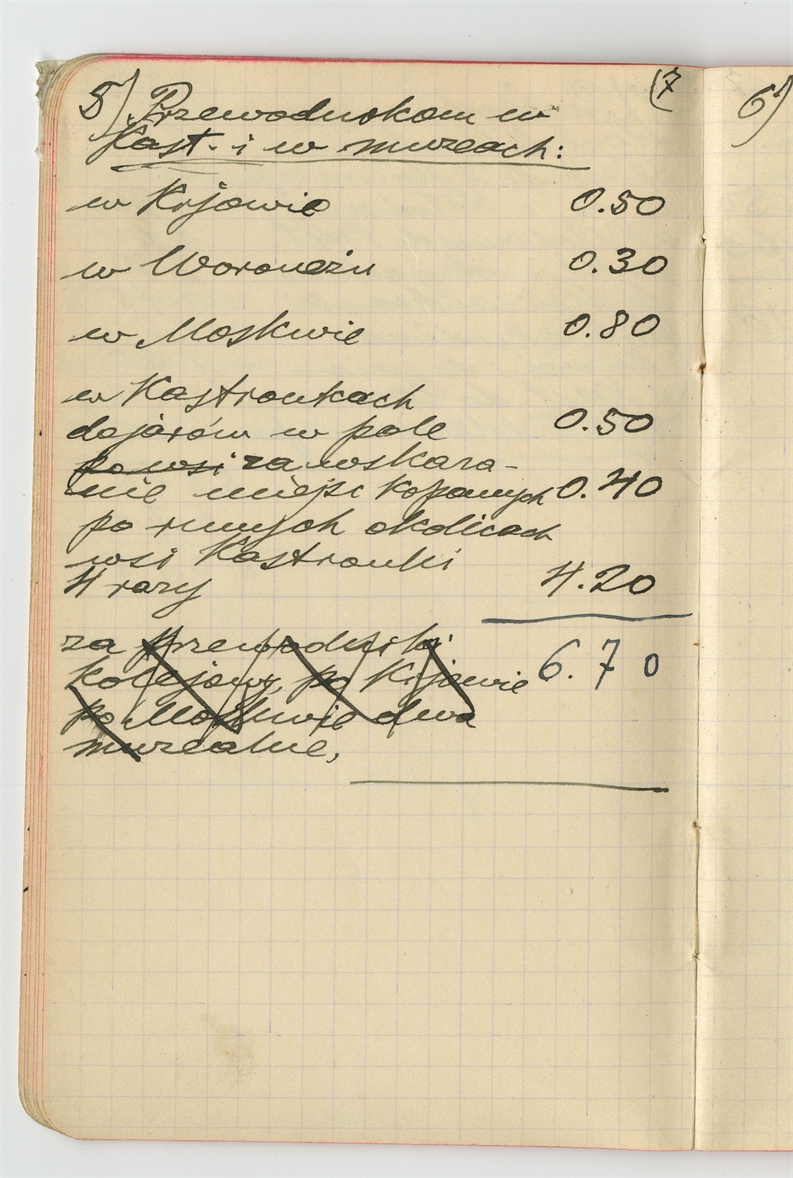 (7
5) Przewodnikom w
Kast. i w muzeach:
w Kijowie 0.50
w Woroneżu 0.30
w Moskwie 0.80
w Kastronkach
dojazów w pole 0.50
po wsi za wskaza-
nie miejsc kopanych 0.40
po innych okolicach
wsi Kastronki
4 razy 4.20
6.70
za przewodniki
kolejowy, po Kijowie
po Moskwie dwa
muzealne,
6)